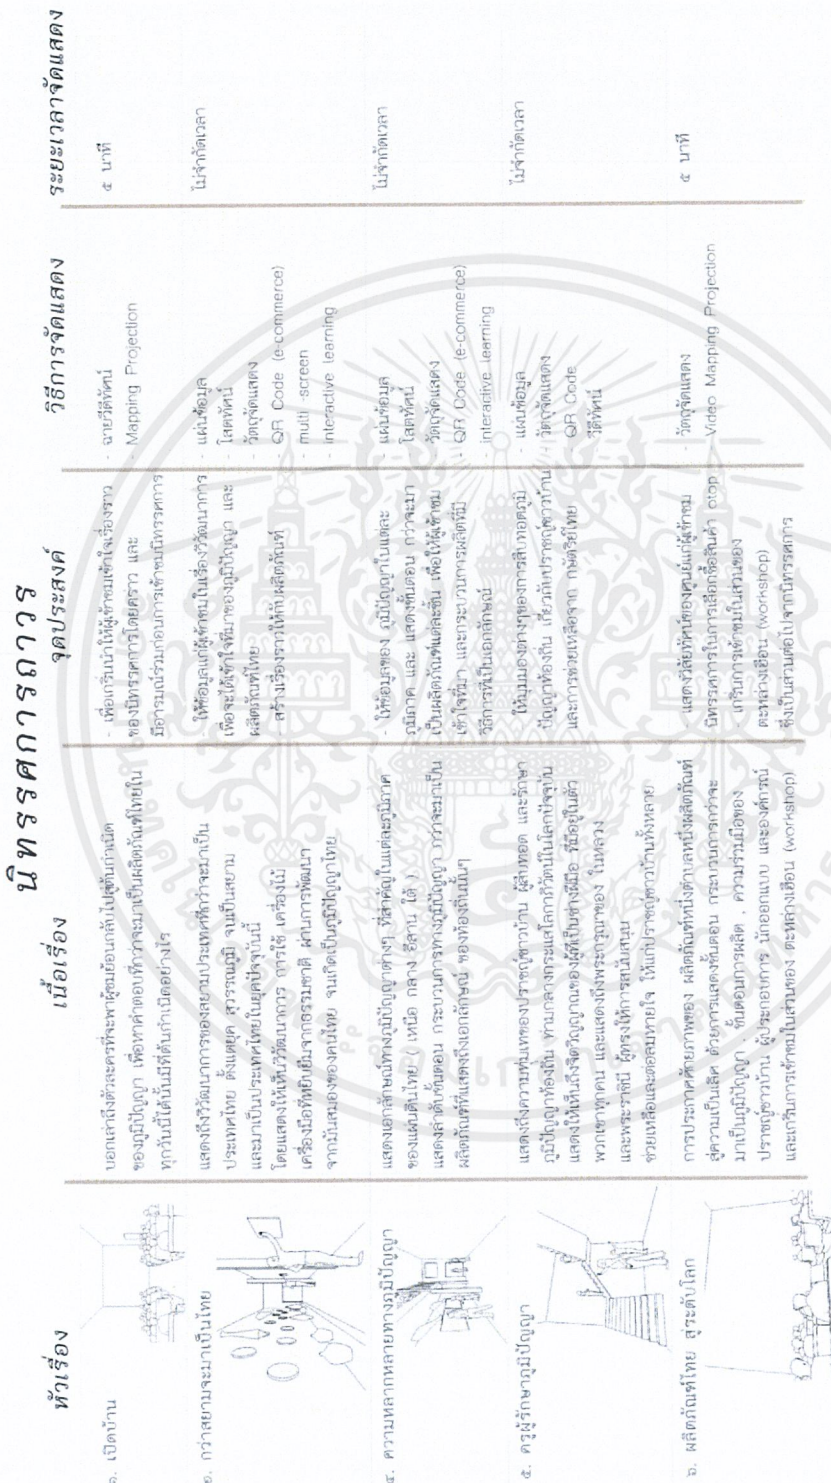 นิทรรศการถาวร
หัวเรื่อง
เนื้อเรื่อง
จุดประสงค์
วิธีการจัดแสดง
ระยะเวลาจัดแสดง
๑. เปิดบ้าน
บอกเล่าถึงตัวละครที่จะพาผู้ชมย้อนกลับไปสู่ต้นกำเนิด
ของภูมิปัญญา เพื่อหาคำตอบที่กว่าจะมาเป็นผลิตภัณฑ์ไทยใน
ทุกวันนี้ได้นั้นมีที่ต้นกำเนิดอย่างไร
- เพื่อเกริ่นนำให้ผู้เข้าชมเข้าใจเรื่องราว
ของนิทรรศการโดยคร่าว และ
มีอารมณ์ร่วมก่อนการเข้าชมนิทรรศการ
- ฉายวีดีทัศน์
- Mapping Projection
๕ นาที
๒. กว่าสยามจะมาเป็นไทย
แสดงถึงวิวัฒนาการของสยามประเทศที่กว่าจะมาเป็น
ประเทศไทย ตั้งแต่ยุค สุวรรณภูมิ จนเป็นสยาม
และมาเป็นประเทศไทยในยุคปัจจุบันนี้
โดยแสดงให้เห็นวิวัฒนาการ การใช้ เครื่องไม้
เครื่องมือที่หยิบยืมจากธรรมชาติ ผ่านการพัฒนา
จากมันสมองของคนไทย จนเกิดเป็นภูมิปัญญาไทย
- ให้ข้อมูลแก่ผู้เข้าชมในเรื่องวิวัฒนาการ
เพื่อจะได้เข้าใจที่มาของภูมิปัญญา และ
ผลิตภัณฑ์ไทย
- สร้างเรื่องราวให้กับผลิตภัณฑ์
- แผ่นข้อมูล
โสตทัศน์
- วัตถุจัดแสดง
- QR Code (e-commerce)
- multi -screen
- interactive learning
ไม่จำกัดเวลา
๔. ความหลากหลายทางภูมิปัญญา
แสดงเอกลักษณ์ทางภูมิปัญญาต่างๆ ที่สำคัญในแต่ละภูมิภาค
ของแผ่นดินไทย ( เหนือ กลาง อีสาน ใต้ )
แสดงลำดับขั้นตอน กระบวนการทางภูมิปัญญา กว่าจะมาเป็น
ผลิตภัณฑ์ที่แสดงถึงเอกลักษณ์ ของท้องถิ่นนั้นๆ
- ให้ข้อมูลของ ภูมิปัญญาในแต่ละ
ภูมิภาค และ แสดงขั้นตอน กว่าจะมา
เป็นผลิตภัณฑ์แต่ละชิ้น เพื่อให้ผู้เข้าชม
เข้าใจที่มา และกระบวนการผลิตที่มี
วิธีการที่เป็นเอกลักษณ์
- แผ่นข้อมูล
โสตทัศน์
วัตถุจัดแสดง
- QR Code (e-commerce)
- interactive learning
ไม่จำกัดเวลา
๕. ครูผู้รักษาภูมิปัญญา
แสดงถึงความทุ่มเทของปราชญ์ชาวบ้าน ผู้สืบทอด และรักษา
ภูมิปัญญาท้องถิ่น ท่ามกลางกระแสโลกาภิวัตน์ในโลกปัจจุบัน
แสดงให้เห็นถึงจิตวิญญาณของผู้ที่เป็นช่างฝีมือ ที่มีอยู่ในตัว
พวกเขาทุกคน และแสดงถึงพระกรุณาของ ในหลวง
และพระราชินี ผู้ทรงให้การสนับสนุน
ช่วยเหลือและต่อลมหายใจ ให้แก่ปราชญ์ชาวบ้านทั้งหลาย
- ให้มุมมองต่างๆของการสืบทอดภูมิ
ปัญญาท้องถิ่น เกี่ยวกับปราชญ์ชาวบ้าน
และการช่วยเหลือจาก กษัตริย์ไทย
- แผ่นข้อมูล
- วัตถุจัดแสดง
QR Code
วีดิทัศน์
ไม่จำกัดเวลา
๖. ผลิตภัณฑ์ไทย สู่ระดับโลก
การประกาศศักยภาพของ ผลิตภัณฑ์หนึ่งตำบลหนึ่งผลิตภัณฑ์
สู่ความเป็นเลิศ ด้วยการแสดงขั้นตอน กระบวนการกว่าจะ
มาเป็นภูมิปัญญา , ขั้นตอนการผลิต , ความร่วมมือของ
ปราชญ์ชาวบ้าน ผู้ประกอบการ นักออกแบบ และองค์กรณ์
และเกริ่นการเข้าชมในส่วนของ ตะหล่างเฮือน (workshop)
- แสดงวิสัยทัศน์ของศูนย์แก่ผู้เข้าชม
นิทรรศการในการเลือกซื้อสินค้า otop
- เกริ่นการเข้าชมในส่วนของ
ตะหล่างเฮือน (workshop)
ซึ่งเป็นส่วนต่อไปจากนิทรรศการ
- วัตถุจัดแสดง
Video Mapping Projection
๕ นาที